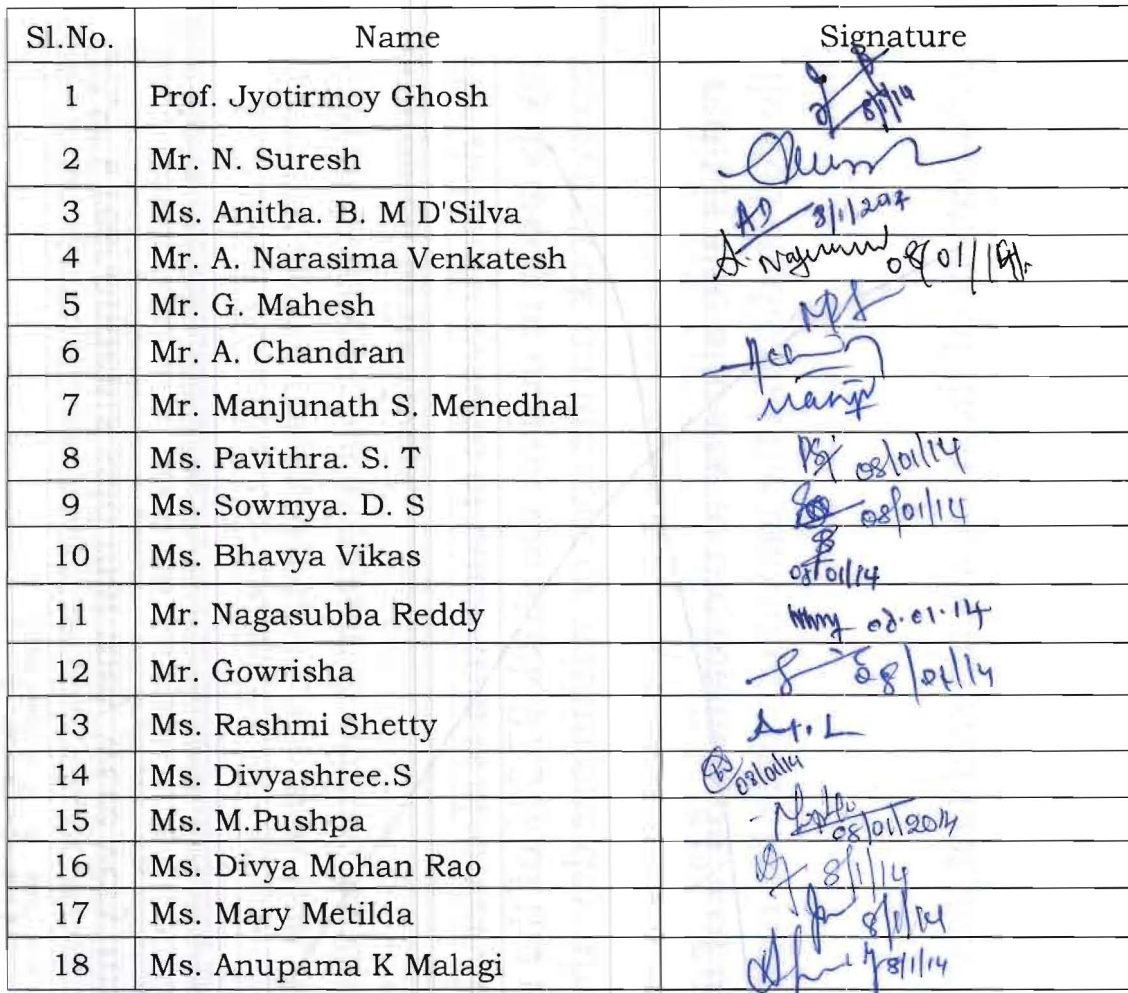 Sl.No. Name Signature
1 Prof. Jyotirmoy Ghosh 8/1/14
2 Mr. N. Suresh
3 Ms. Anitha. B. M D'Silva AD 8/1/2014
4 Mr. A. Narasima Venkatesh 08/01/14
5 Mr. G. Mahesh
6 Mr. A. Chandran
7 Mr. Manjunath S. Menedhal
8 Ms. Pavithra. S. T 08/01/14
9 Ms. Sowmya. D. S 08/01/14
10 Ms. Bhavya Vikas 08/01/14
11 Mr. Nagasubba Reddy 08.01.14
12 Mr. Gowrisha 08/01/14
13 Ms. Rashmi Shetty
14 Ms. Divyashree.S 08/01/14
15 Ms. M.Pushpa 08/01/2014
16 Ms. Divya Mohan Rao 8/1/14
17 Ms. Mary Metilda 8/1/14
18 Ms. Anupama K Malagi 8/1/14